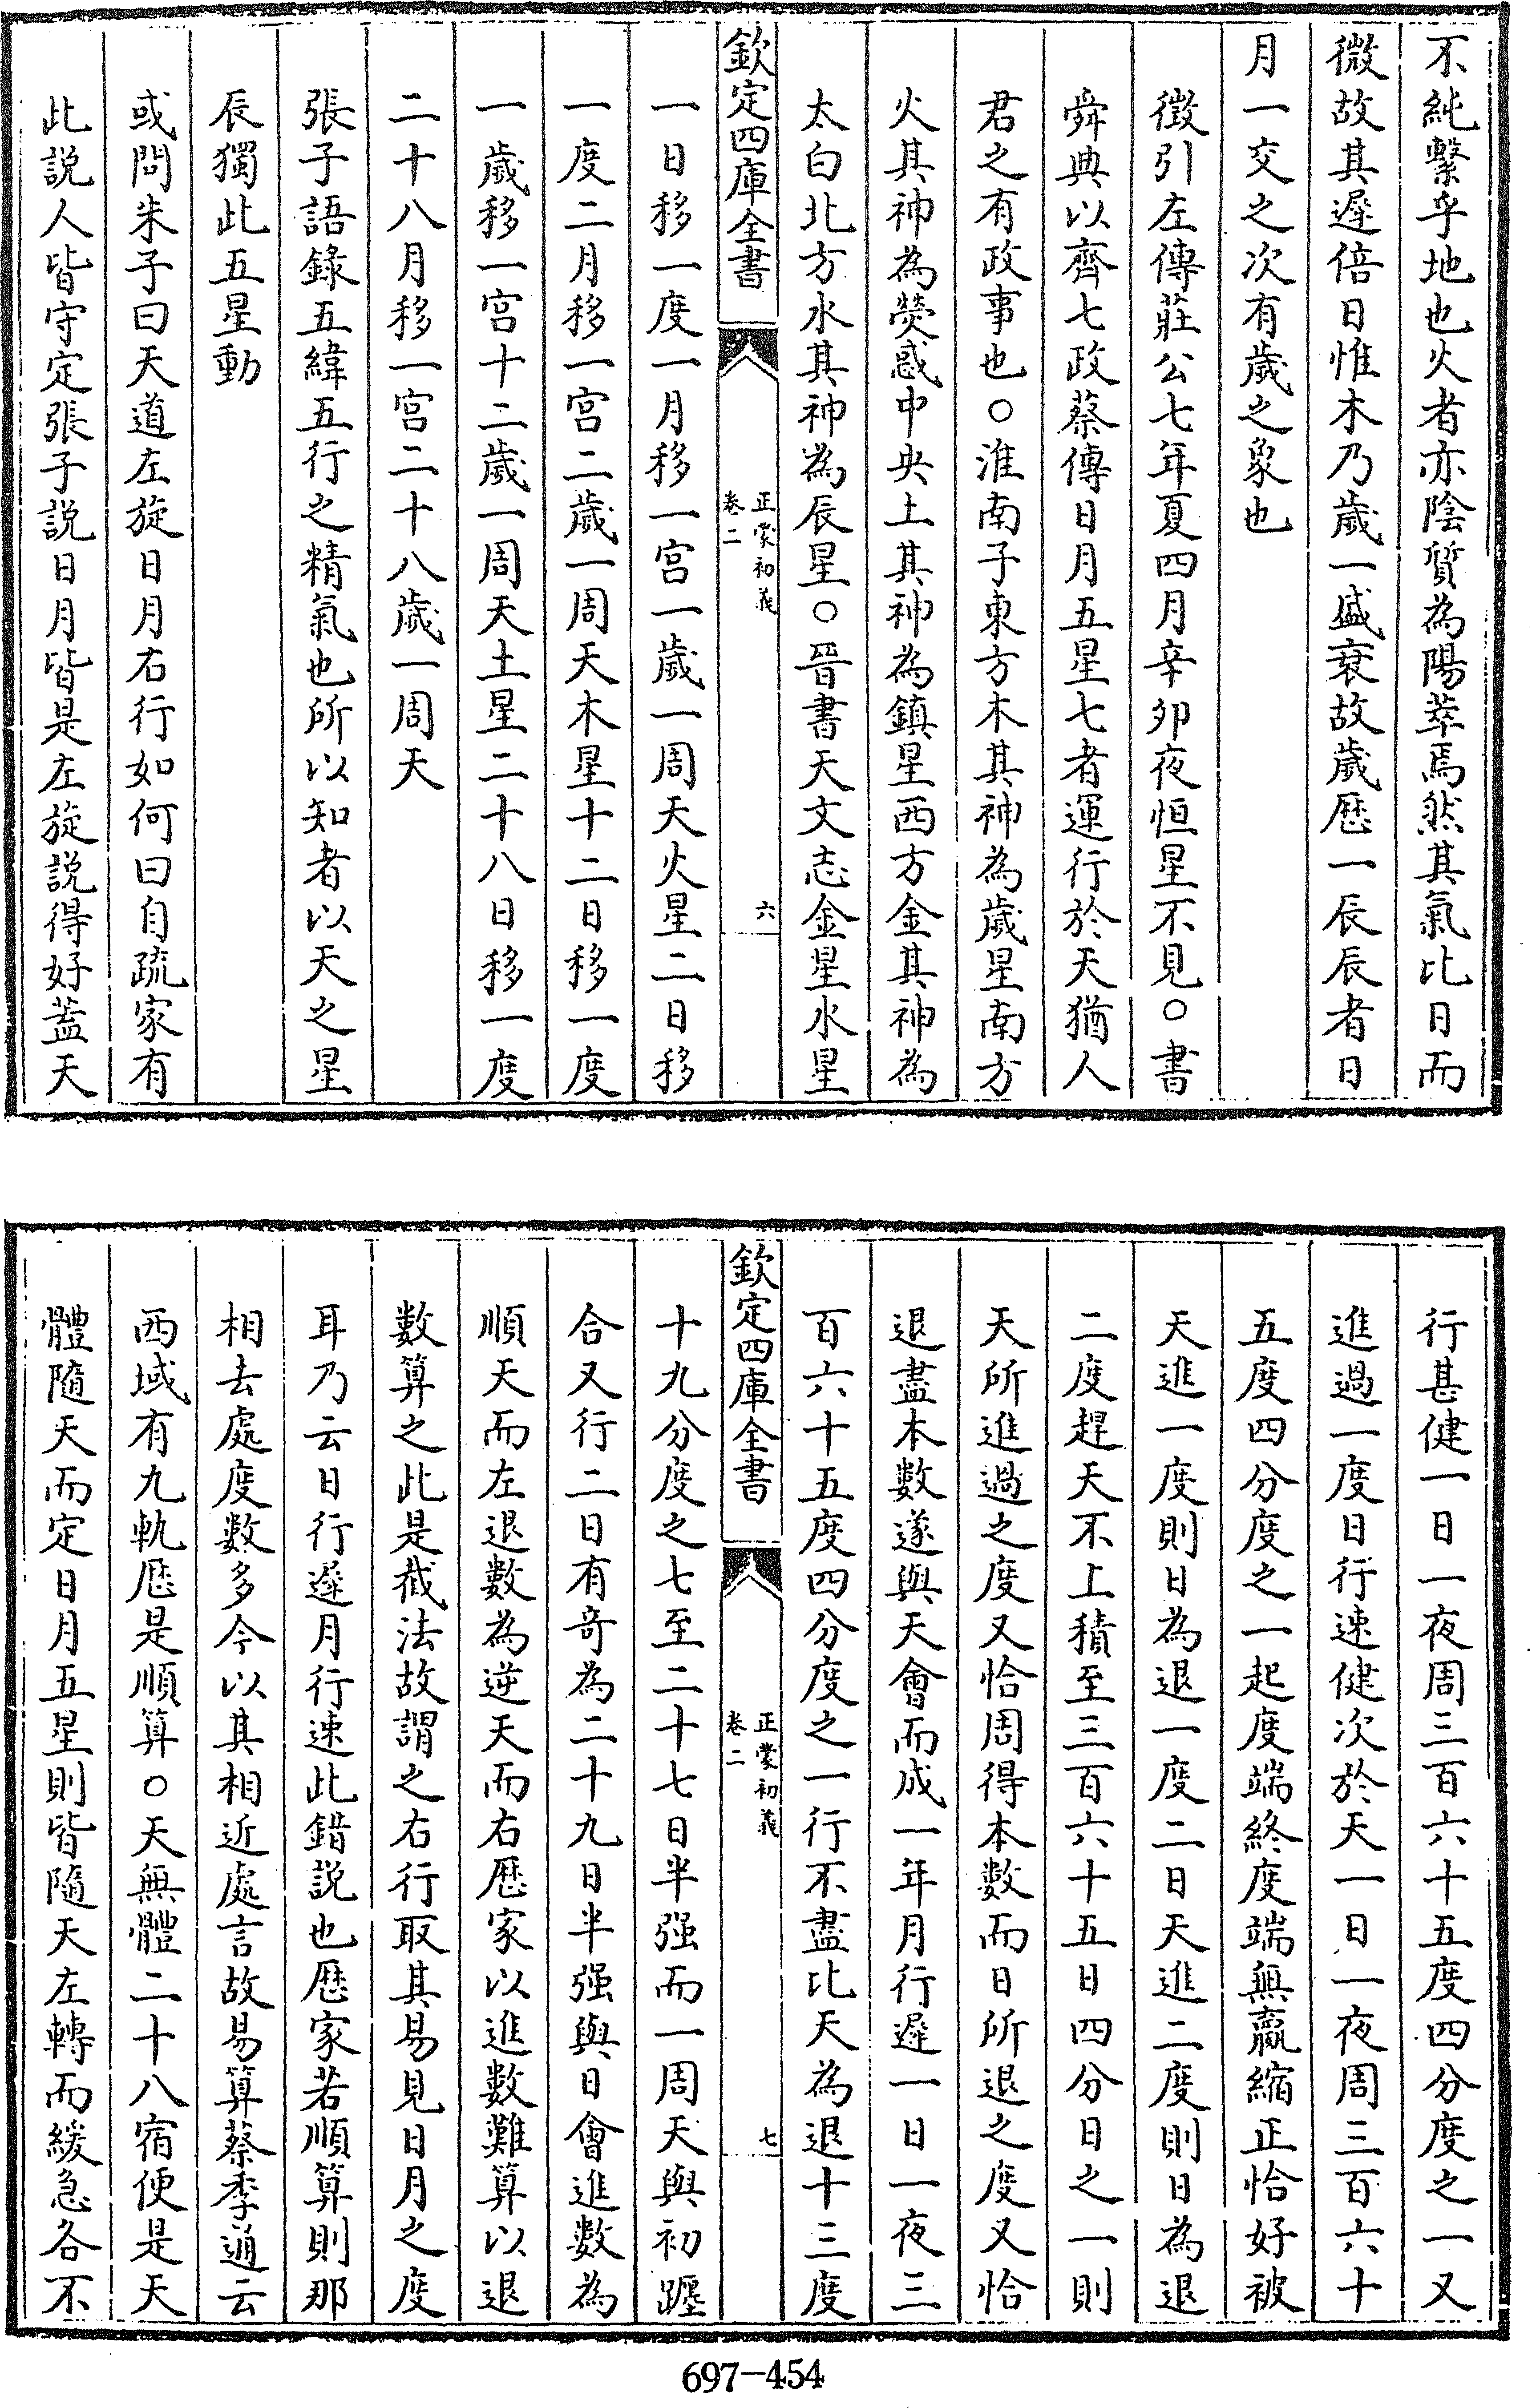 不純繫乎地也火者亦陰質為陽萃焉然其氣比日而
微故其遲倍日惟木乃歲一盛衰故歲歷一辰辰者日
月一交之次有歲之象也
徵引左傳莊公七年夏四月辛卯夜恒星不見○書
舜典以齊七政蔡傳日月五星七者運行於天猶人
君之有政事也○淮南子東方木其神為歲星南方
火其神為熒惑中央土其神為鎮星西方金其神為
太白北方水其神為辰星○晉書天文志金星水星
欽定四庫全書
正蒙初義
卷二
六
一日移一度一月移一宮一歲一周天火星二日移
一度二月移一宮二歲一周天木星十二日移一度
一歲移一宮十二歲一周天土星二十八日移一度
二十八月移一宮二十八歲一周天
張子語錄五緯五行之精氣也所以知者以天之星
辰獨此五星動
或問朱子曰天道左旋日月右行如何曰自疏家有
此說人皆守定張子說日月皆是左旋說得好蓋天
行甚健一日一夜周三百六十五度四分度之一又
進過一度日行速健次於天一日一夜周三百六十
五度四分度之一起度端終度端無贏縮正恰好被
天進一度則日為退一度二日天進二度則日為退
二度趕天不上積至三百六十五日四分日之一則
天所進過之度又恰周得本數而日所退之度又恰
退盡本數遂與天會而成一年月行遲一日一夜三
百六十五度四分度之一行不盡比天為退十三度
欽定四庫全書
正蒙初義
卷二
七
十九分度之七至二十七日半强而一周天與初躔
合又行二日有奇為二十九日半强與日會進數為
順天而左退數為逆天而右歷家以進數難算以退
數算之此是截法故謂之右行取其易見日月之度
耳乃云日行遲月行速此錯說也歷家若順算則那
相去處度數多今以其相近處言故易算蔡季通云
西域有九執歷是順算○天無體二十八宿便是天
體隨天而定日月五星則皆隨天左轉而緩急各不
697-454